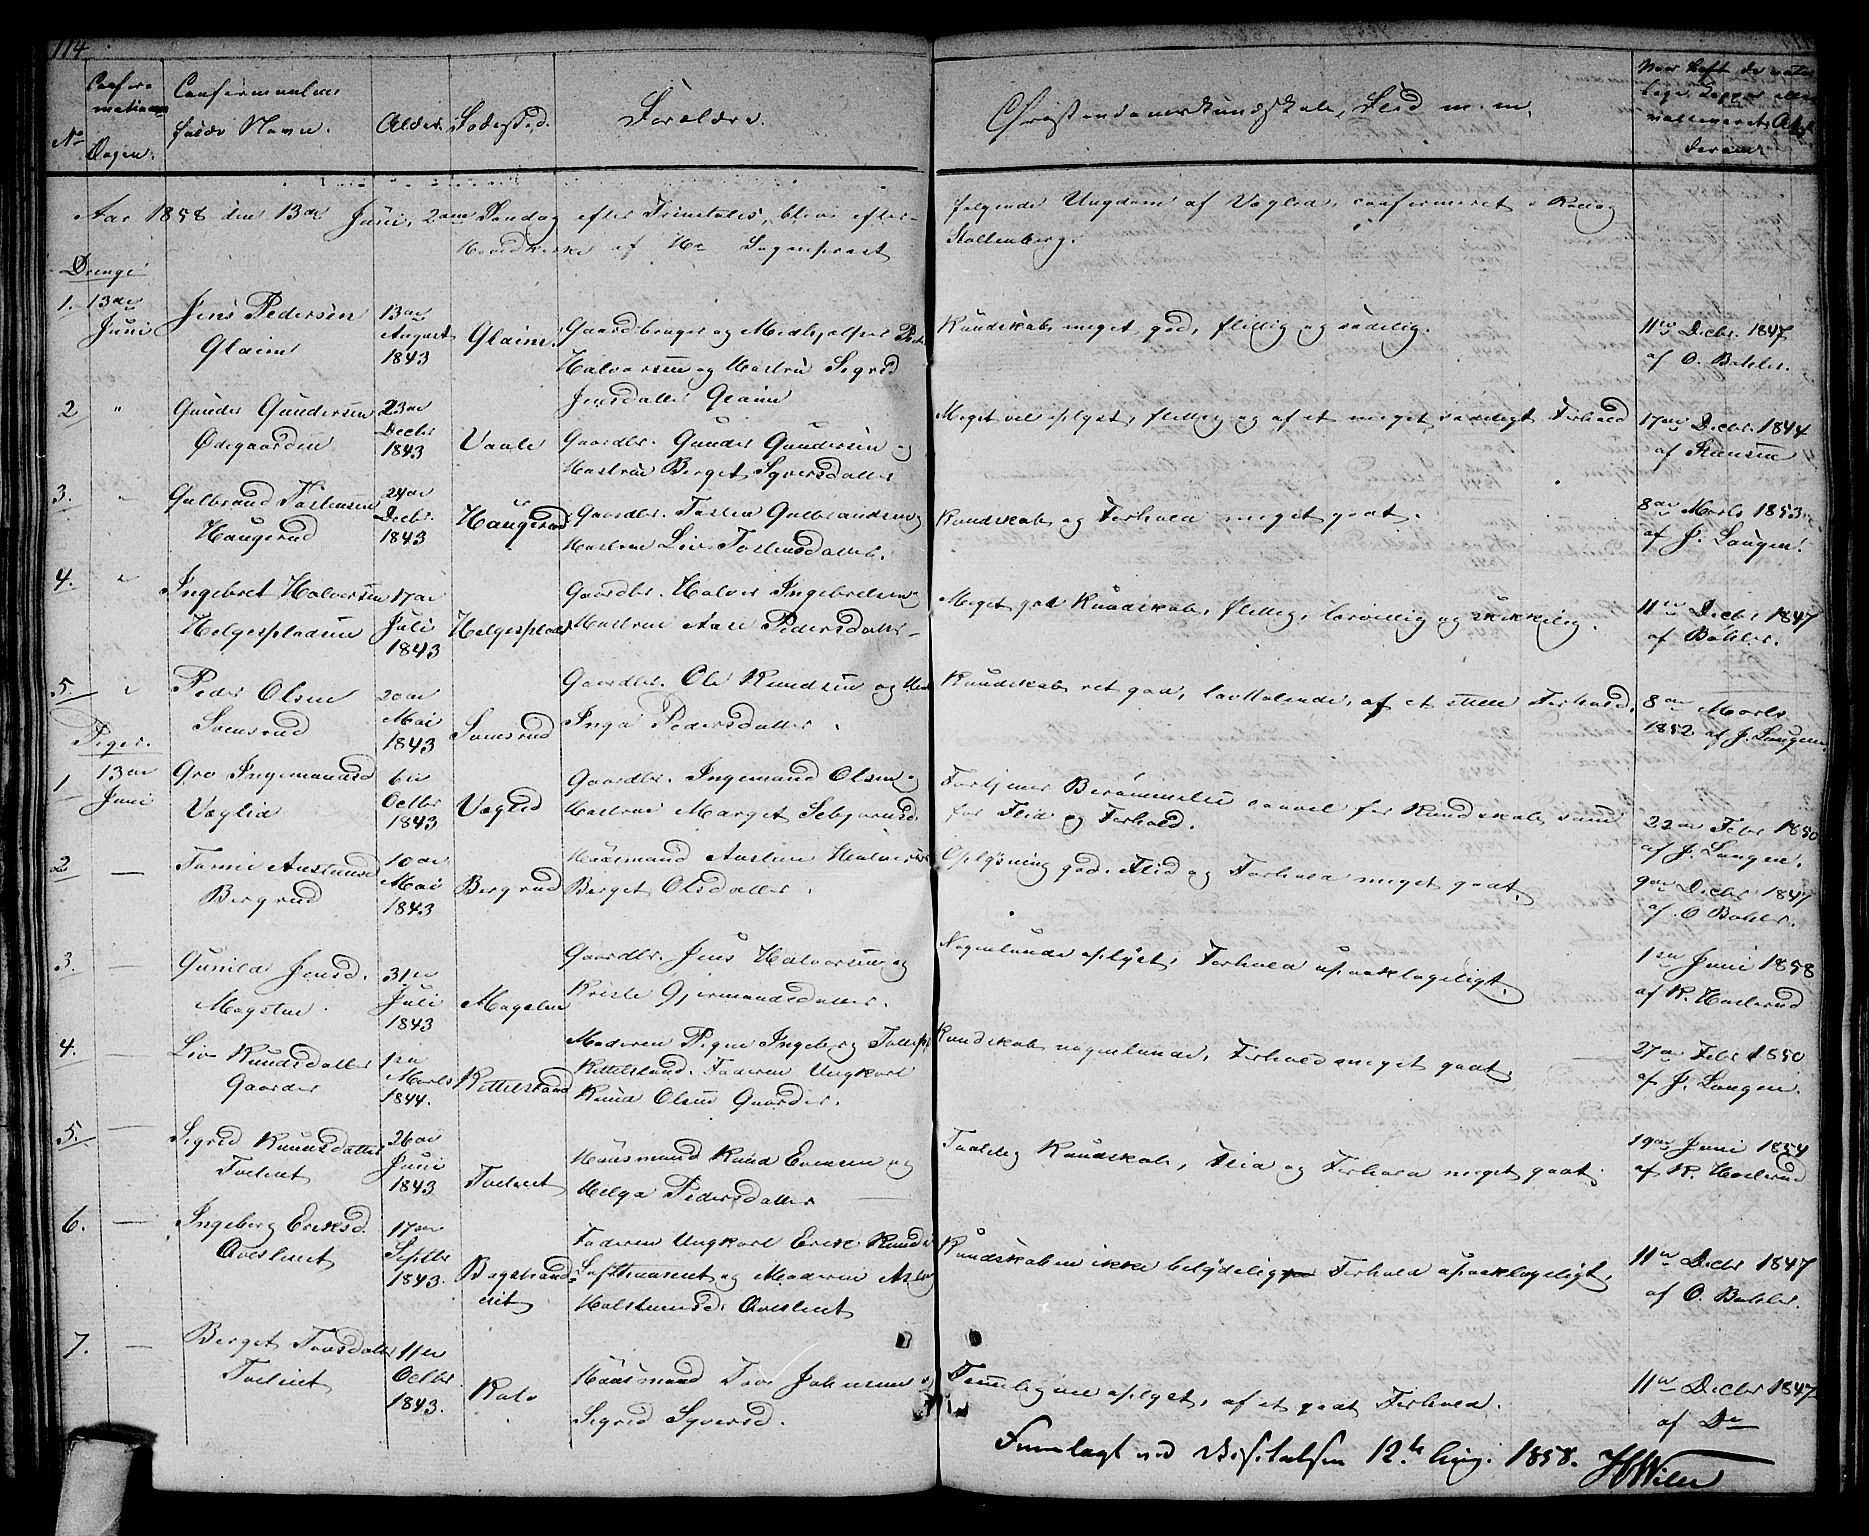 114
No
Confir-
mations
Dagen.
Confirmandens
fulde Navn.
Alder.
Fødested.
Forældre.
Christendomskundskab, Flid m. m.
Naar havt de natur-
lige Kopper eller
vaccineret, Attest
derom
Aar 1858 den 13de Juni, 2den Søndag efter Trinitatis, blev efter-
følgende Ungdom af Væglid, confirmeret i Rollag
Hovedkirke af Hr Sognepræst
Stoltenberg.
Drenge
1. 13de Juni
Jens Pedersen
Glaim
13de August 1843
Glaim.
Gaardbruger og Medhjælper Peder
Halvorsen og Hustru Sigrid
Jensdatter Glaim
Kundskab meget god, flittig og sædelig.
11te Decbr. 1847
af O. Bøhler.
2 "
Gunder Gundersen
Ødegaarden
23de Decbr 1843
Vaale
Gaardbr. Gunder Gundersen og
Hustru Berget Syversdatter
Meget vel oplyst, flittig og af et meget sædeligt Forhold
17de Decbr. 1844
af Steensen
3. "
Gulbrand Tostensen
Haugerud
24de Decbr. 1843
Haugerud
Gaardbr. Tosten Gulbrandsen og
Hustru Liv Tostensdatter.
Kundskab og Forhold meget godt.
8de Marts 1853
af J. Langen.
4. "
Ingebret Halvorsen
Helgespladsen
17de Juli 1843
Helgesplads
Gaardbr. Halvor Ingebretsen og
Hustru Aase Pedersdatter
Meget god Kundskab, flittig, lærvillig og skikkelig.
11te Decbr 1847
af Bøhler.
5. "
Peder Olsen
Somrud
20de Mai 1843
Somrud
Gaardbr. Ole Knudsen og
Inga Pedersdatter.
Kundskab ret god, lavttalende, af et stille Forhold.
8de Marts
1852 af J. Langen
Piger.
1 13de Juni
Gro Ingemandsd
Væglid
6te Octbr 1843
Væglid
Gaardbr. Ingemund Olsen og
Hustrue Marget Sebjørnsd.
Fortjener Berømmelse saavel for Kundskab som
for Flid og Forhold.
22de Febr 1850
af J. Langen.
2 —
Tonne Austensd
Bergrud
10de Mai 1843
Bergrud
Huusmand Austen Halvorsen
Berget Olsdatter.
Oplysning god. Flid og Forhold meget godt.
9de Decbr 1847
af O Bøhler.
3. —
Gunild Jensd.
Mogstue.
31te Juli 1843
Mogstue
Gaardbr. Jens Halvorsen og
Kristi Gjermundsdatter.
Nogenlunde oplyst, Forhold upaaklageligt.
1ste Juni 1858
af K. Haslerud
4. —
Liv Knudsdatter
Gaarder
1ste Marts 1844.
Kittelsland
Moderen Pigen Ingeborg
Kittelsland. Faderen Ungkarl
Knud Olsen Gaarder.
Kundskab nogenlunde, Forhold meget godt,
27de Febr 1850
af J. Langen.
5. —
Sigrid Knudsdatter
Tveitet
26de Juni 1843
Tveitet
Huusmand Knud Evensen og
Helga Pedersdatter
Taalelig Kundskab, Flid og Forhold meget godt.
19de Juni 1854
af K. Haslerud
6. —
Ingeborg Eriksd.
Oveslaet
17de Septbr 1843.
Faderen Ungkarl Erik Knuds
og Moderen
Holstensd. Oveslaet
Kundskaben ikke betydelig Forhold upaaklageligt,
11te Decbr 1847
af O. Bøhler.
7. —
Berget Toresdatter
Tveitet
11te Octbr. 1843.
Huusmand Tore Johnsen og
Sigrid Syversd.
Temmelig vel oplyst, af et godt Forhold.
11te Decbr 1847
af Do
Fremlagt ved Visitatsen 12te Aug. 1858.